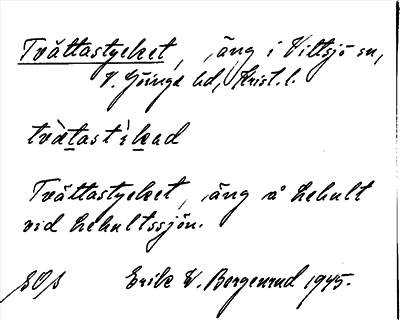 Tvättastycket, äng i Vittsjö sn,
V. Göinge hd, Krist. l.
Tvättastycket, äng å Lehult
vid Lehultssjön.
Erik W. Borgenrud 1945.